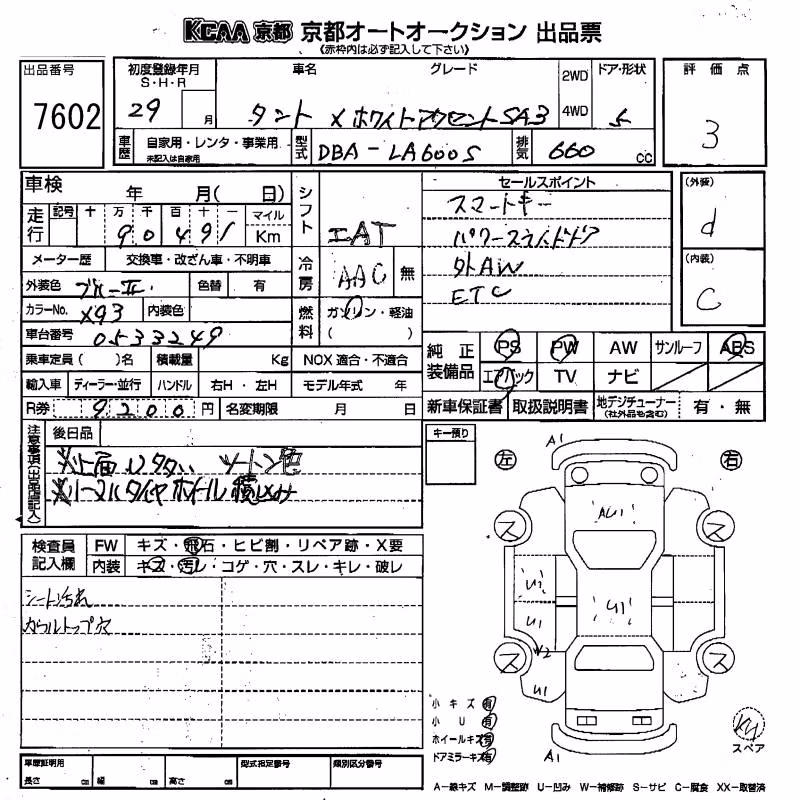 KCAA 京都 京都オートオークション 出品票
《赤枠内は必ず記入して下さい》
出品番号
7602
初度登録年月
S・H・R
29 月
車名
グレード
2WD
4WD
ドア・形状
5
タント Xホワイトアクセント SA3
評価点
3
車歴
自家用・レンタ・事業用
未記入は自家用
型式
DBA-LA600S
排気
660 cc
車検
年 月( 日)
シフト
IAT
走行
記号 十 万 千 百 十 一
マイル
Km
90491
メーター歴
交換車・改ざん車・不明車
冷房
AAC
無
外装色
色替
有
カラーNo.
X93
内装色
燃料
ガソリン・軽油
( )
車台番号
0533249
乗車定員( )名
積載量
Kg
NOX適合・不適合
輸入車
ディーラー・並行
ハンドル
右H・左H
モデル年式 年
R券
9200 円
名変期限 月 日
セールスポイント
スマートキー
パワースライドドア
外AW
ETC
(外装)
d
(内装)
C
純正装備品
PS
PW
AW
サンルーフ
ABS
エアバック
TV
ナビ
新車保証書
取扱説明書
地デジチューナー
(社外品も含む)
有・無
注意事項(出品店記入)
後日品
ツートン色
※ノーマルタイヤホイール積込み
キー預り
検査員記入欄
FW
キズ・飛石・ヒビ割・リペア跡・X要
内装
キズ・汚レ・コゲ・穴・スレ・キレ・破レ
シート汚れ
カウルトップ穴
A1
左
右
ス
ス
AU1
U2
U1
U1
W2
ス
ス
U1
A1
小キズ 有
小U 有
ホイールキズ 有
ドアミラーキズ 有
スペア
車歴証明用
長さ cm
幅 cm
高さ cm
型式指定番号
類別区分番号
A―線キズ M―調整跡 U―凹み W―補修跡 S―サビ C―腐食 XX―取替済